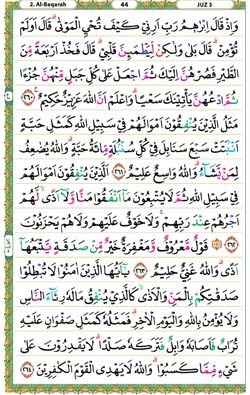 2. Al-Baqarah 44 JUZ 3
وَاِذْ قَالَ اِبْرٰهٖمُ رَبِّ اَرِنِيْ كَيْفَ تُحْيِ الْمَوْتٰى ؕ قَالَ اَوَلَمْ
تُؤْمِنْ ؕ قَالَ بَلٰى وَلٰكِنْ لِّيَطْمَىِٕنَّ قَلْبِيْ ؕ قَالَ فَخُذْ اَرْبَعَةً مِّنَ
الطَّيْرِ فَصُرْهُنَّ اِلَيْكَ ثُمَّ اجْعَلْ عَلٰى كُلِّ جَبَلٍ مِّنْهُنَّ جُزْءًا
ثُمَّ ادْعُهُنَّ يَاْتِيْنَكَ سَعْيًا ؕ وَاعْلَمْ اَنَّ اللّٰهَ عَزِيْزٌ حَكِيْمٌ ﴿۲۶۰﴾
مَثَلُ الَّذِيْنَ يُنْفِقُوْنَ اَمْوَالَهُمْ فِيْ سَبِيْلِ اللّٰهِ كَمَثَلِ حَبَّةٍ
اَنْۢبَتَتْ سَبْعَ سَنَابِلَ فِيْ كُلِّ سُنْۢبُلَةٍ مِّائَةُ حَبَّةٍ ؕ وَاللّٰهُ يُضٰعِفُ
لِمَنْ يَّشَآءُ ؕ وَاللّٰهُ وَاسِعٌ عَلِيْمٌ ﴿۲۶۱﴾ اَلَّذِيْنَ يُنْفِقُوْنَ اَمْوَالَهُمْ
فِيْ سَبِيْلِ اللّٰهِ ثُمَّ لَا يُتْبِعُوْنَ مَاۤ اَنْفَقُوْا مَنًّا وَّلَاۤ اَذًى ۙ لَّهُمْ
اَجْرُهُمْ عِنْدَ رَبِّهِمْ ۚ وَلَا خَوْفٌ عَلَيْهِمْ وَلَا هُمْ يَحْزَنُوْنَ
﴿۲۶۲﴾ قَوْلٌ مَّعْرُوْفٌ وَّمَغْفِرَةٌ خَيْرٌ مِّنْ صَدَقَةٍ يَّتْبَعُهَاۤ
اَذًى ؕ وَاللّٰهُ غَنِيٌّ حَلِيْمٌ ﴿۲۶۳﴾ يٰۤاَيُّهَا الَّذِيْنَ اٰمَنُوْا لَا تُبْطِلُوْا
صَدَقٰتِكُمْ بِالْمَنِّ وَالْاَذٰى ۙ كَالَّذِيْ يُنْفِقُ مَالَهٗ رِئَآءَ النَّاسِ
وَلَا يُؤْمِنُ بِاللّٰهِ وَالْيَوْمِ الْاٰخِرِ ؕ فَمَثَلُهٗ كَمَثَلِ صَفْوَانٍ عَلَيْهِ
تُرَابٌ فَاَصَابَهٗ وَابِلٌ فَتَرَكَهٗ صَلْدًا ؕ لَا يَقْدِرُوْنَ عَلٰى
شَيْءٍ مِّمَّا كَسَبُوْا ؕ وَاللّٰهُ لَا يَهْدِي الْقَوْمَ الْكٰفِرِيْنَ ﴿۲۶۴﴾